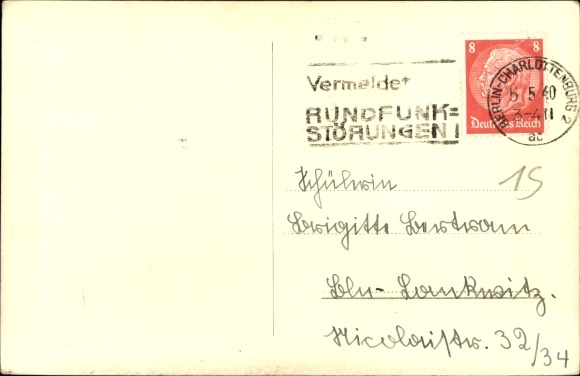 Vermeidet
RUNDFUNK=
STÖRUNGEN!
8 8
Deutsches Reich
BERLIN-CHARLOTTENBURG 2
5 5 40
3-4
ac
15
Schülerin
Brigitte Bertram
Bln-Lankwitz.
Nicolaistr. 32/34